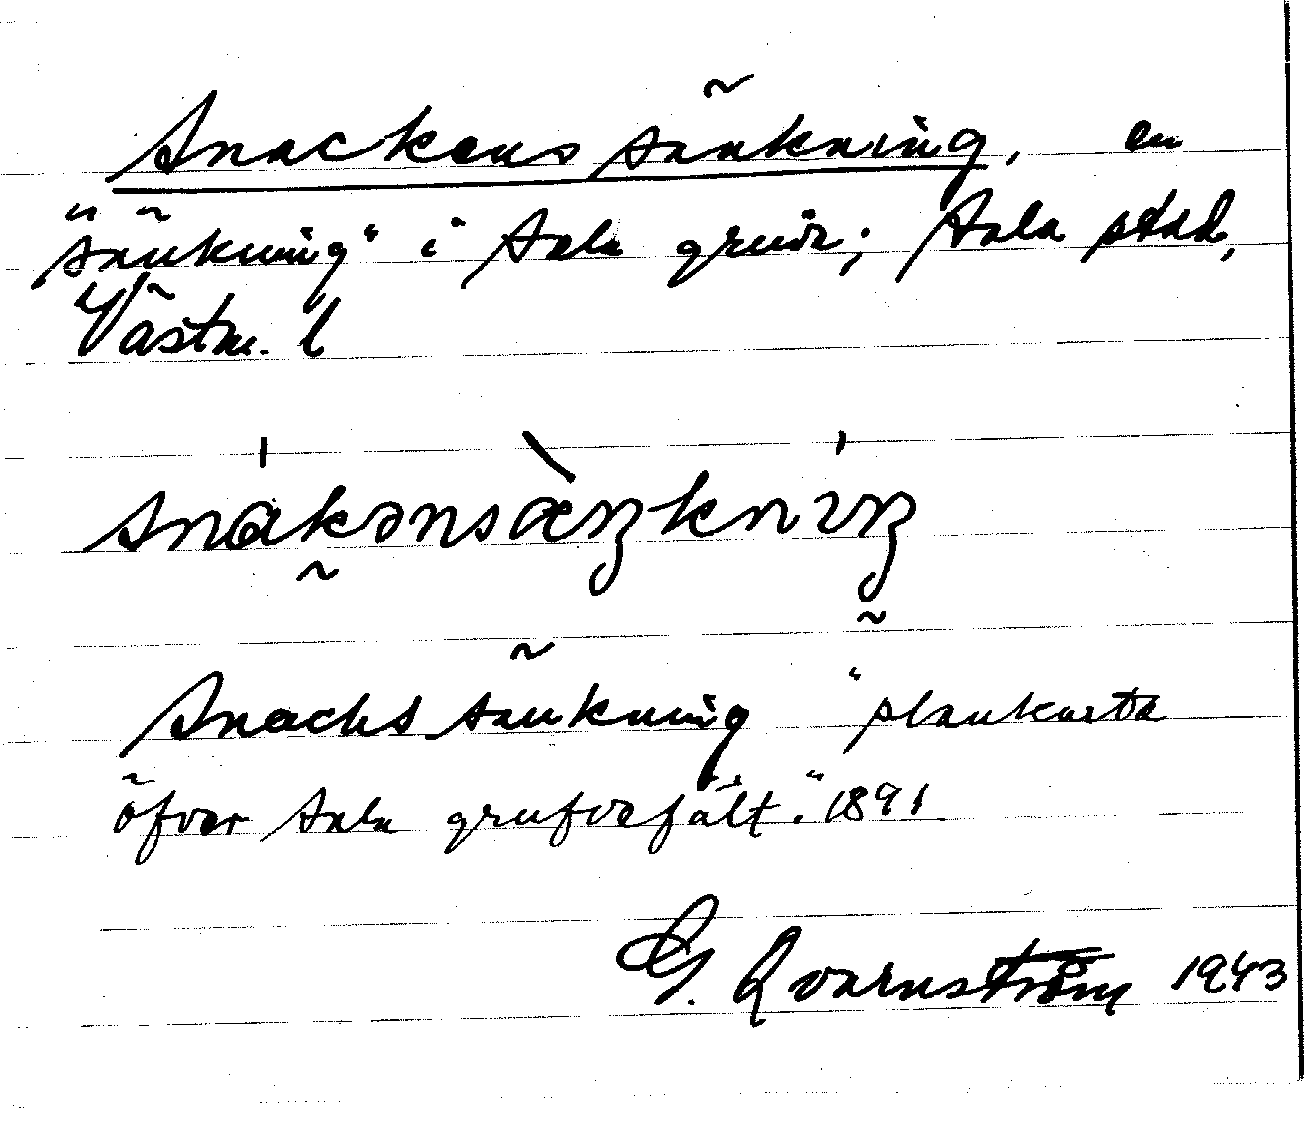 Snackens sänkning, en
"sänkning" i Sala gruva; Sala stad,
Västm. l
snakənsæŋknıŋ
Snacks sänkning "plankarta
öfver Sala grufvefält." 1891
G. Qvarnström 1943